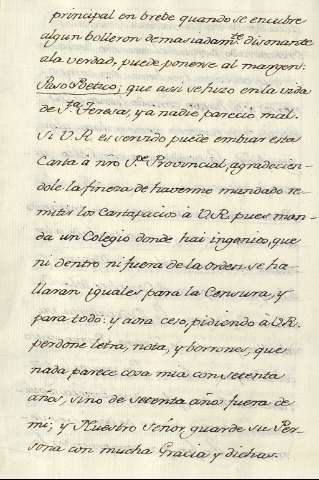 principal en brebe quando se encubre
algun bolleron demasiadam.te disonante
a la verdad, puede ponerse al margen:
Paso Poetico; que assi se hizo en la vida
de S.ta Teresa, y a nadie pareció mal.
Si V.R. es servido puede embiar esta
Carta â ñro P.e Provincial, agradecien-
dole la fineza de haverme mandado re-
mitir los Cartapacios à V.R. pues man-
da un Colegio donde hai ingenios, que
ni dentro ni fuera de la orden se ha-
llarán iguales para la Censura, y
para todo: y aora ceso, pidiendo à V.R.
perdone letra, nota, y borrones, que
nada parece cosa mia con setenta
años, sino de setenta años fuera de
mi; y Nuestro Señor guarde su Per-
sona con mucha Gracia y dichas.